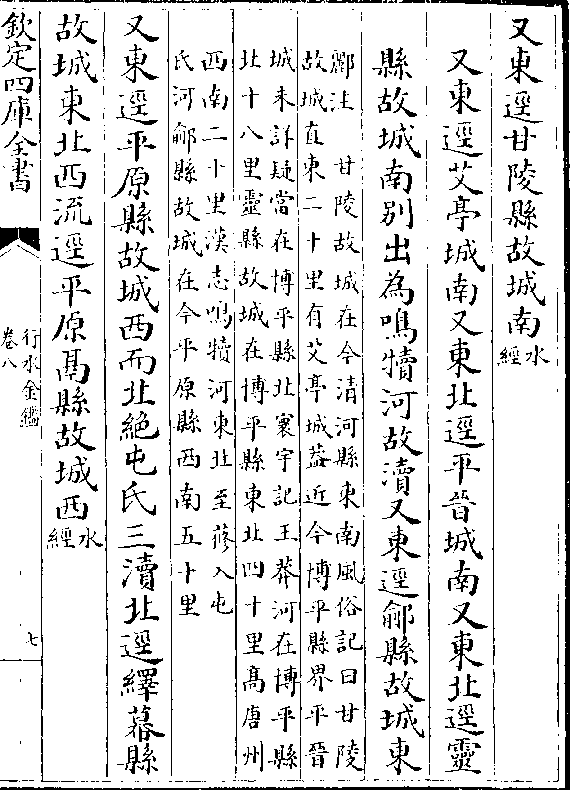 又東逕甘陵縣故城南水經
又東逕艾亭城南又東北逕平晉城南又東北逕靈
縣故城南別出為鳴犢河故瀆又東逕鄃縣故城東
酈注　甘陵故城在今清河縣東南風俗記曰甘陵
故城直東二十里有艾亭城葢近今博平縣界平晉
城未詳疑當在博平縣北寰宇記王莽河在博平縣
北十八里靈縣故城在博平縣東北四十里髙唐州
西南二十里漢志鳴犢河東北至蓨入屯
氏河鄃縣故城在今平原縣西南五十里
又東逕平原縣故城西而北絶屯氏三瀆北逕繹幕縣
故城東北西流逕平原鬲縣故城西水經
欽定四庫全書
行水金鑑
卷八
七